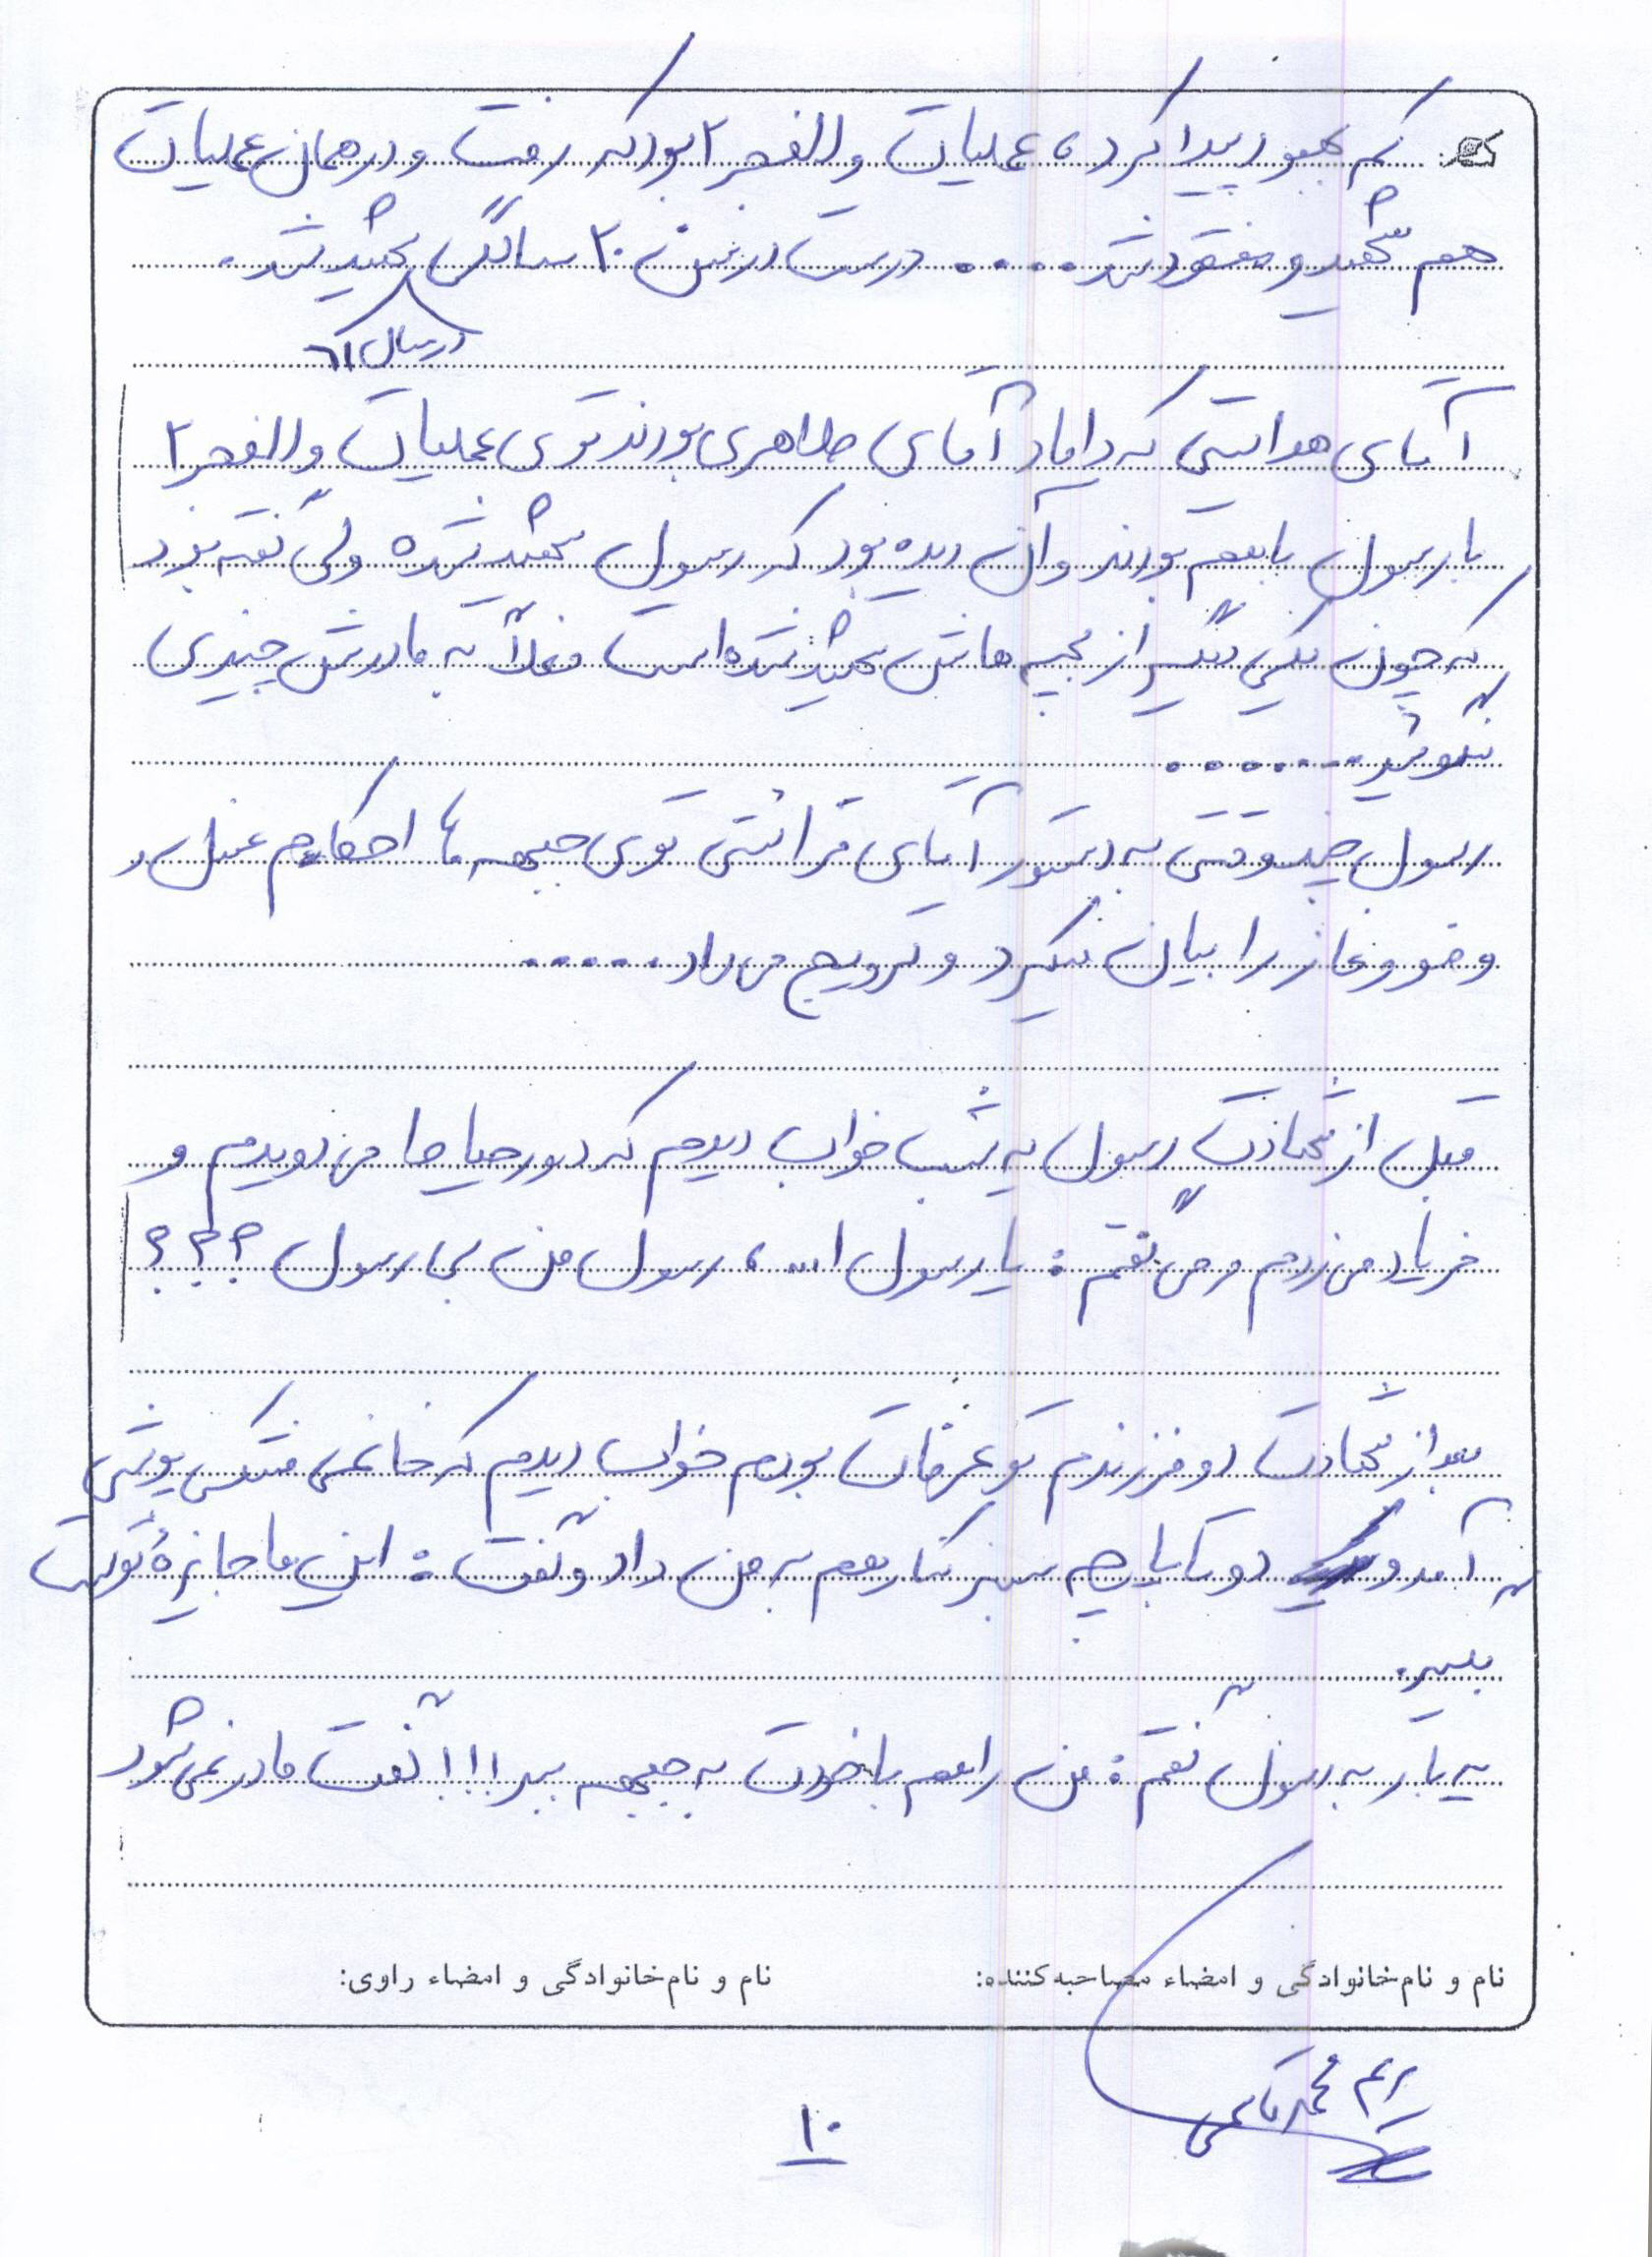 کم بهبود پیدا کرد، عملیات والفجر ۲ بود که رفت و در همان عملیات
هم شهید و مفقود شد .... درست در سن ۲۰ سالگی شهید شد.
در سال ۶۱
آقای هدایتی که داماد آقای طاهری بودند توی عملیات والفجر ۲
با رسول باهم بودند و آن دیده بود که رسول شهید شده ولی گفته بود
که چون یکی دیگر از بچه هاش شهید شده است فعلاً به مادرش چیزی
نگوئید.......
رسول چند وقتی به دستور آقای قرائتی توی جبهه ها احکام غسل و
وضو و نماز را بیان میکرد و ترویج می داد.....
قبل از شهادت رسول یه شب خواب دیدم که دور حیاط ها می دویدم و
فریاد می زدم و می گفتم: یا رسول ا...، رسول من بی رسول ؟؟؟
بعد از شهادت دو فرزندم تو عرفات بودم خواب دیدم که خانمی مشکی پوشی
آمد و دو تا پارچه سبز کنار هم به من داد و گفت: این ها جایزهٔ توست
بگیر.
یه بار به رسول گفتم: من را هم با خودت به جبهه ببر!!! گفت مادر نمی شود
نام و نام‌خانوادگی و امضاء مصاحبه‌کننده: نام و نام‌خانوادگی و امضاء راوی:
مریم محمدقاسمی
۱۰